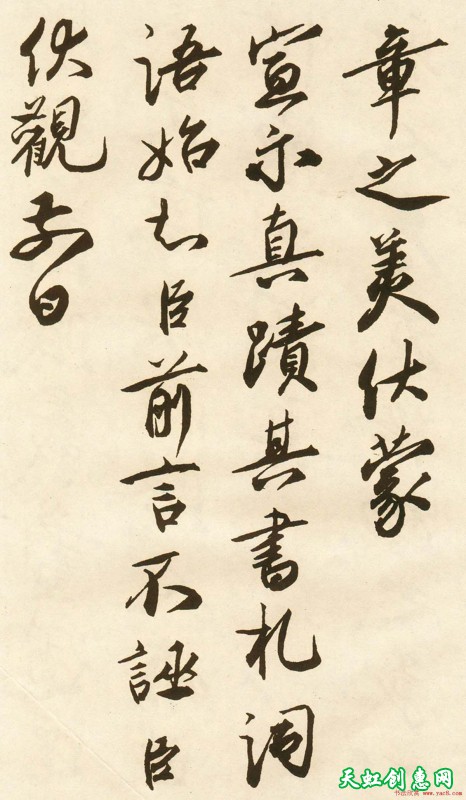 章之美伏蒙
宣示真蹟其書札詞
語始知臣前言不誣臣
伏觀 日
天虹创惠网
书法欣赏 www.yac8.com